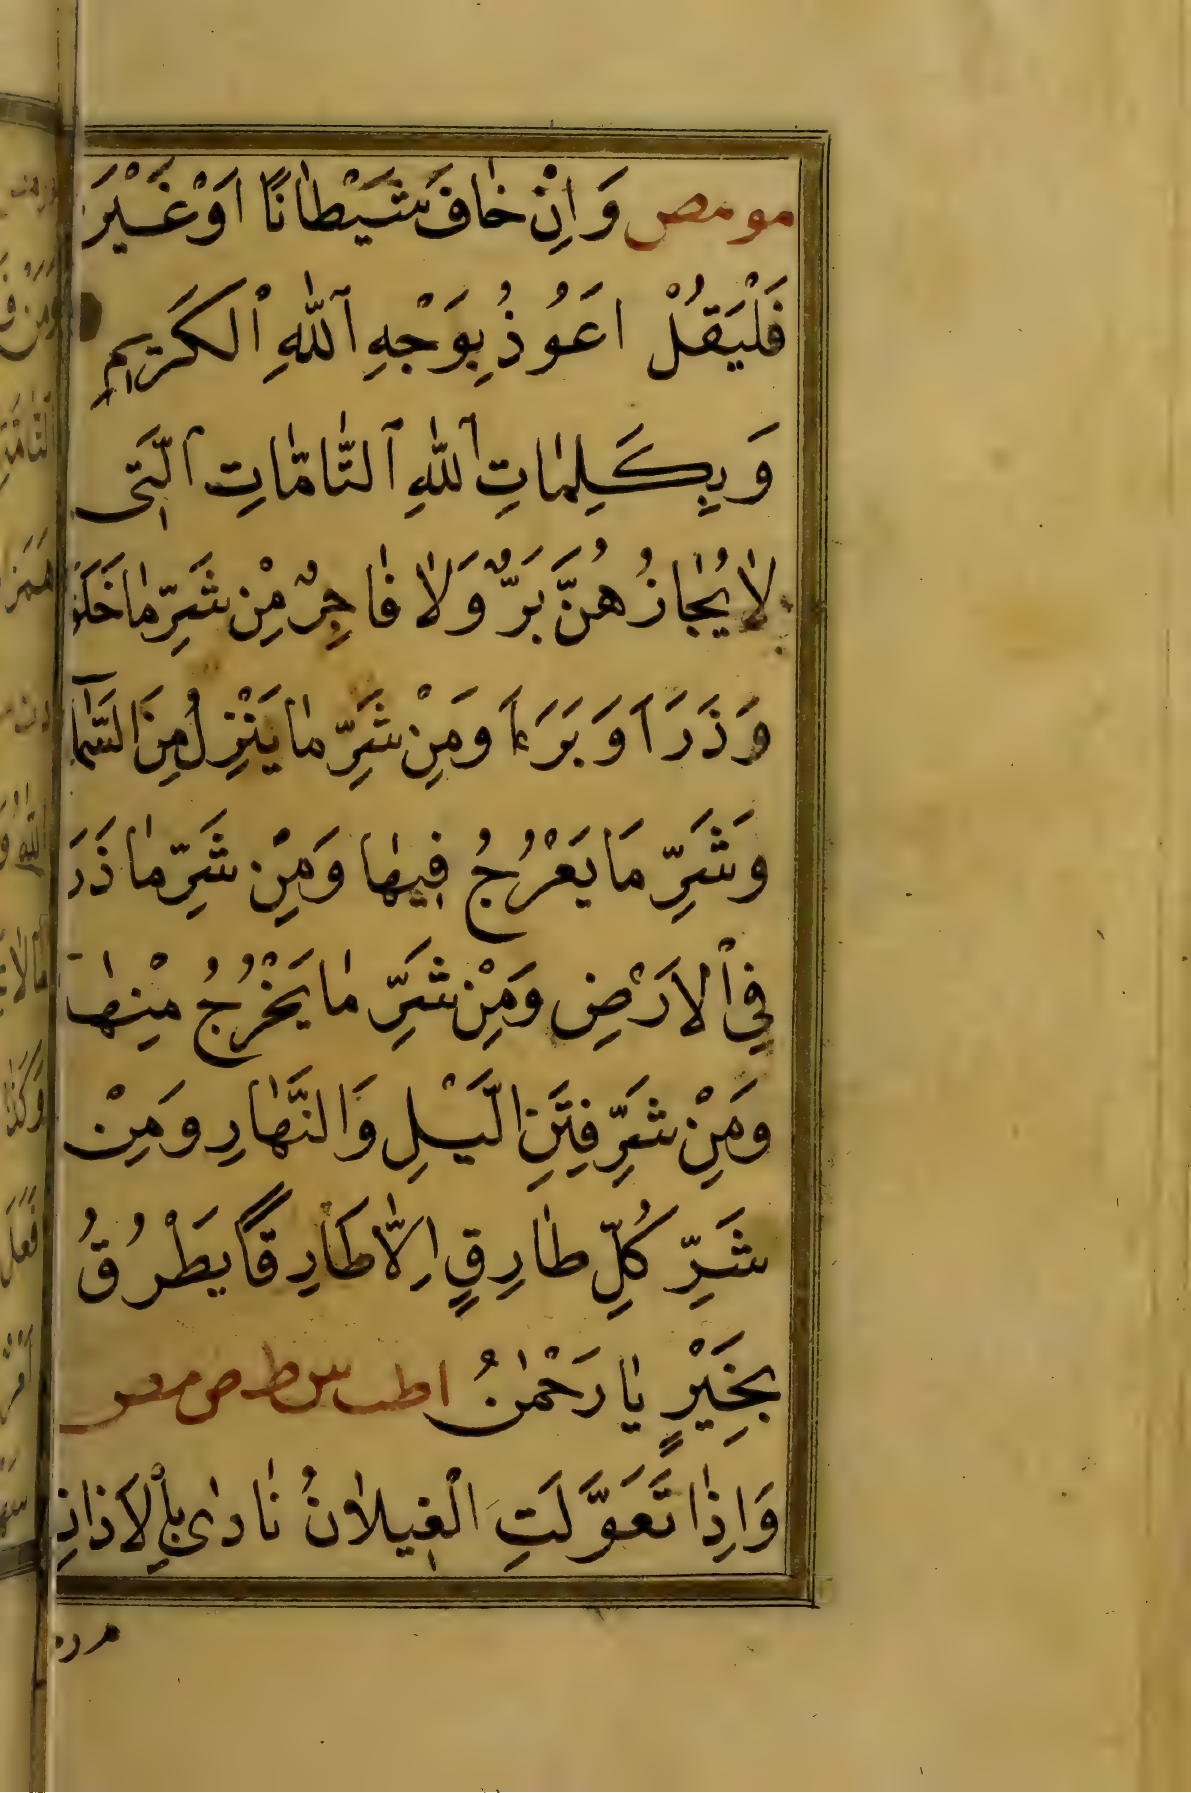 مو مص وَاِنْ خٰافَ شَيْطٰانًا اَوْ غَيْرَ
فَلْيَقُلْ اَعُوذُ بِوَجْهِ ٱللّٰهِ ٱلْكَرِيمِ
وَبِكَلِمٰاتِ ٱللّٰهِ ٱلتّٰامّٰاتِ ٱلَّتِى
لٰا يُجٰازُ هُنَّ بَرٌّ وَلٰا فٰاجِرٌ مِنْ شَرِّ مٰا خَلَقَ
وَذَرَاَ وَبَرَءَاَ وَمِنْ شَرِّ مٰا يَنْزِلُ مِنَ السَّمَآ
وَشَرِّ مَا يَعْرُجُ فِيهٰا وَمِنْ شَرِّ مٰا ذَرَ
فِي ٱلْاَرْضِ وَمِنْ شَرِّ مٰا يَخْرُجُ مِنْهٰا
وَمِنْ شَرِّ فِتَنِ الَّيْلِ وَالنَّهٰارِ وَمِنْ
شَرِّ كُلِّ طٰارِقٍ اِلّٰا طَارِقًا يَطْرُقُ
بِخَيْرٍ يٰا رَحْمٰنُ اطب س ط ص مص
وَاِذٰا تَغَوَّلَتِ الْغِيلٰانُ نٰادٰى بِاْلاَذٰانِ